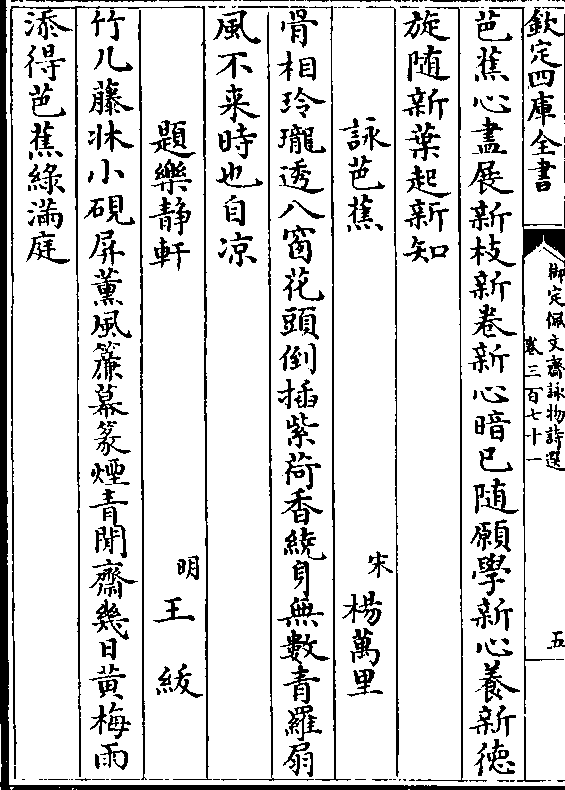 欽定四庫全書
御定佩文齋詠物詩選
卷三百七十一
五
芭蕉心盡展新枝新卷新心暗已随願學新心養新徳
旋随新葉起新知
詠芭蕉
宋 楊萬里
骨相玲瓏透八窗花頭倒插紫荷香繞身無數青羅扇
風不来時也自凉
題樂静軒
明 王 紱
竹几藤牀小硯屏薫風簾幕篆煙青閒齋幾日黄梅雨
添得芭蕉綠滿庭